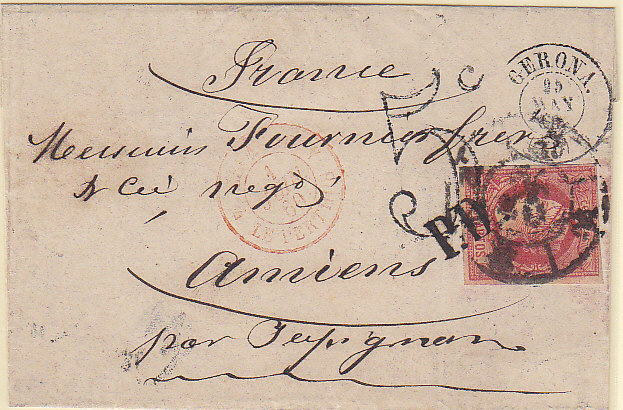 France
GERONA.
25
MAY
Messieurs Fournier frères
& Cie négts
LE PERTHUS
P.D
Amiens
par Perpignan